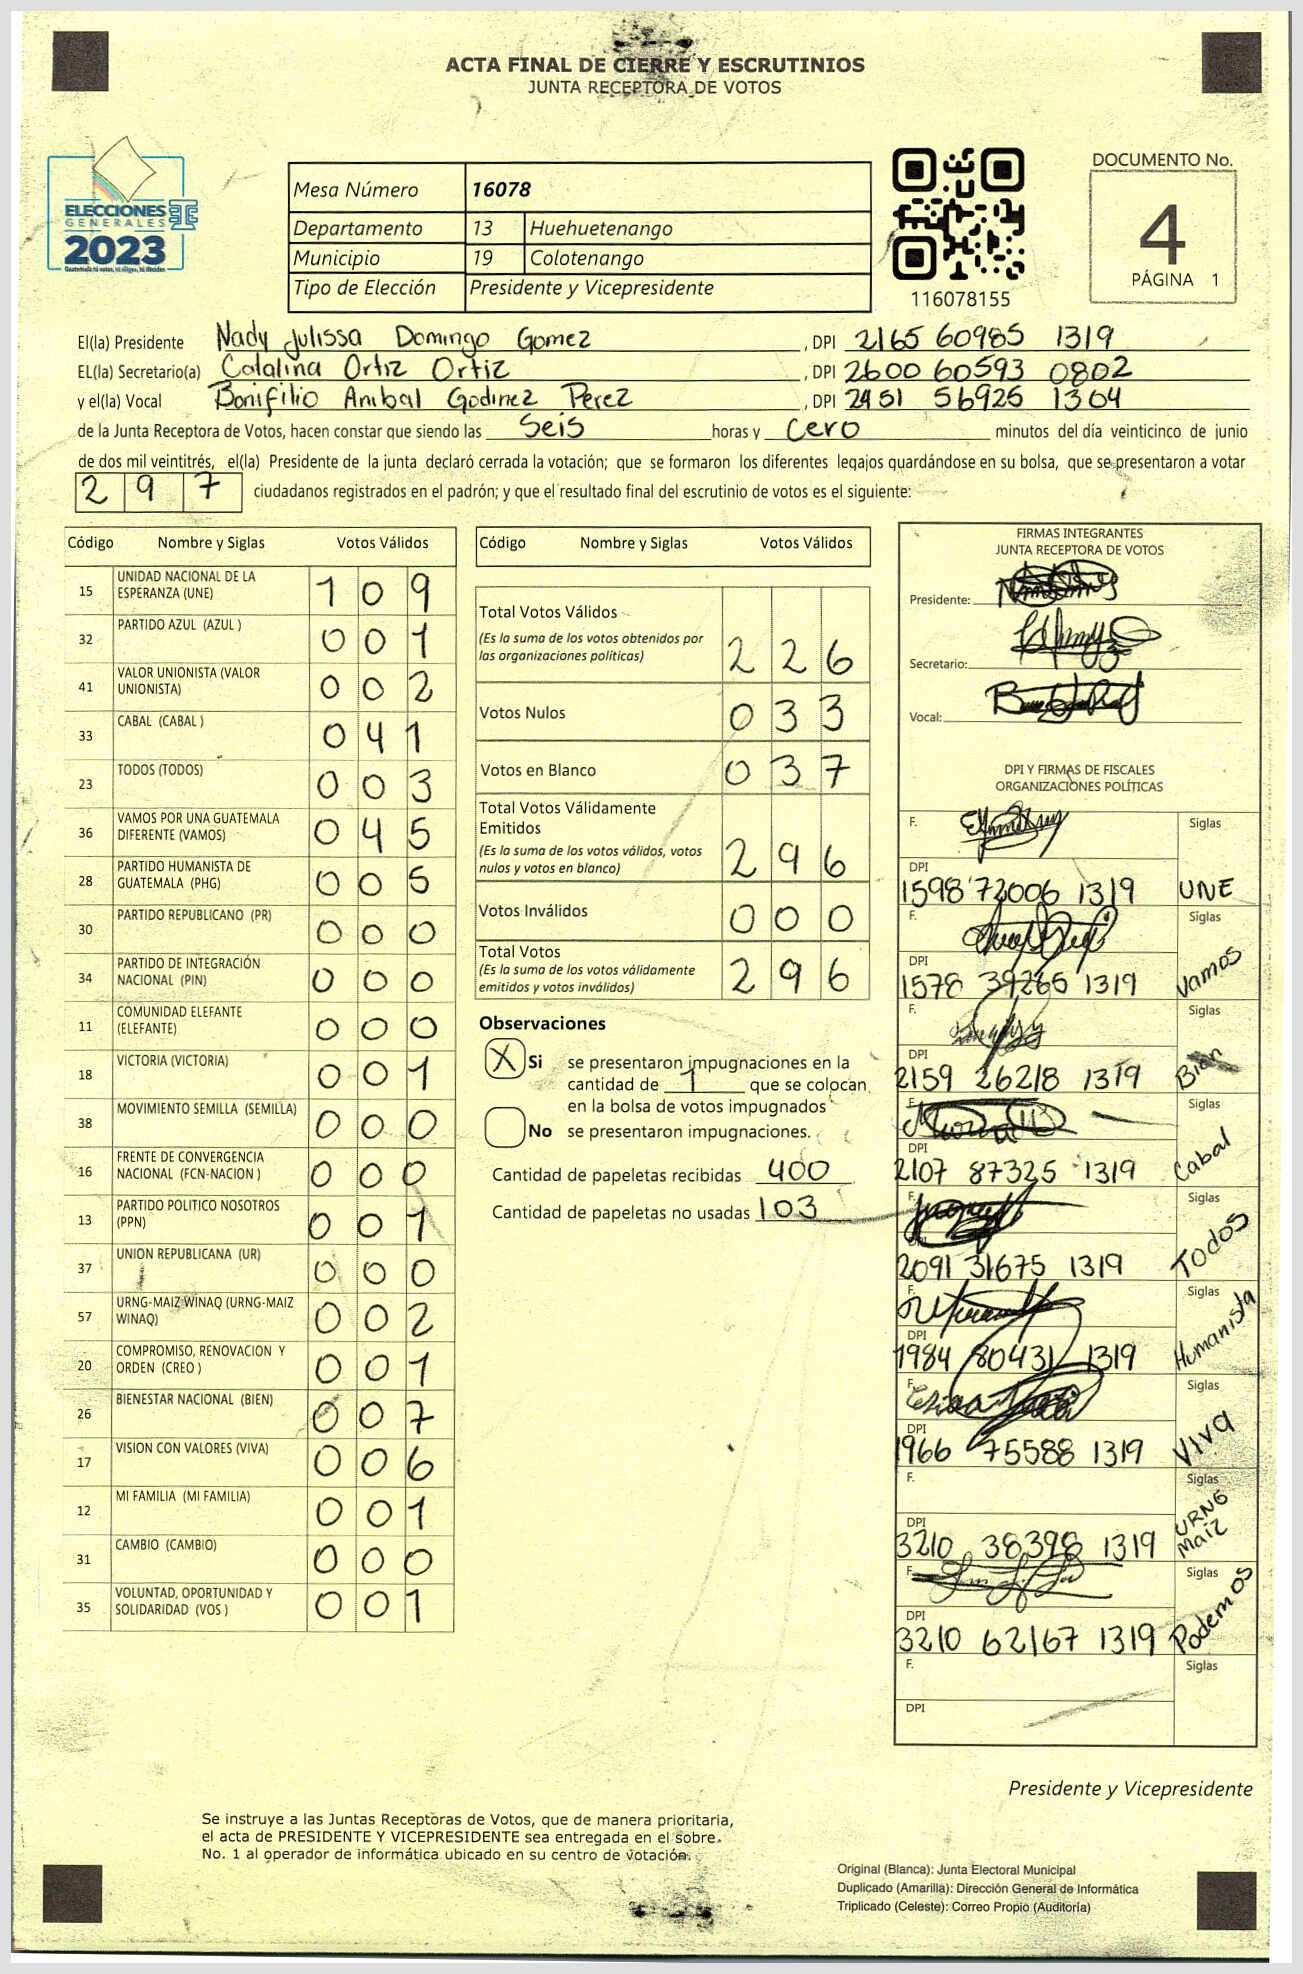 ACTA FINAL DE CIERRE Y ESCRUTINIOS
JUNTA RECEPTORA DE VOTOS
ELECCIONES
GENERALES
2023
Mesa Número 16078
Departamento 13 Huehuetenango
Municipio 19 Colotenango
Tipo de Elección Presidente y Vicepresidente
116078155
DOCUMENTO No.
4
PÁGINA 1
El(la) Presidente Nady Julissa Domingo Gomez, DPI 2165 60985 1319
EL(la) Secretario(a) Catalina Ortiz Ortiz, DPI 2600 60593 0802
y el(la) Vocal Bonifilio Anibal Godinez Perez, DPI 2451 56925 1304
de la Junta Receptora de Votos, hacen constar que siendo las Seis horas y cero minutos del día veinticinco de junio
de dos mil veintitrés, el(la) Presidente de la junta declaró cerrada la votación; que se formaron los diferentes legajos quardándose en su bolsa, que se presentaron a votar
297 ciudadanos registrados en el padrón; y que el resultado final del escrutinio de votos es el siguiente:
Código Nombre y Siglas Votos Válidos
15 UNIDAD NACIONAL DE LA ESPERANZA (UNE) 109
32 PARTIDO AZUL (AZUL ) 001
41 VALOR UNIONISTA (VALOR UNIONISTA) 002
33 CABAL (CABAL ) 041
23 TODOS (TODOS) 003
36 VAMOS POR UNA GUATEMALA DIFERENTE (VAMOS) 045
28 PARTIDO HUMANISTA DE GUATEMALA (PHG) 005
30 PARTIDO REPUBLICANO (PR) 000
34 PARTIDO DE INTEGRACIÓN NACIONAL (PIN) 000
11 COMUNIDAD ELEFANTE (ELEFANTE) 000
18 VICTORIA (VICTORIA) 001
38 MOVIMIENTO SEMILLA (SEMILLA) 000
16 FRENTE DE CONVERGENCIA NACIONAL (FCN-NACION ) 000
13 PARTIDO POLITICO NOSOTROS (PPN) 001
37 UNION REPUBLICANA (UR) 000
57 URNG-MAIZ WINAQ (URNG-MAIZ WINAQ) 002
20 COMPROMISO, RENOVACION Y ORDEN (CREO ) 001
26 BIENESTAR NACIONAL (BIEN) 007
17 VISION CON VALORES (VIVA) 006
12 MI FAMILIA (MI FAMILIA) 001
31 CAMBIO (CAMBIO) 000
35 VOLUNTAD, OPORTUNIDAD Y SOLIDARIDAD (VOS ) 001
Código Nombre y Siglas Votos Válidos
Total Votos Válidos
(Es la suma de los votos obtenidos por
las organizaciones políticas) 226
Votos Nulos 033
Votos en Blanco 037
Total Votos Válidamente
Emitidos
(Es la suma de los votos válidos, votos
nulos y votos en blanco) 296
Votos Inválidos 000
Total Votos
(Es la suma de los votos válidamente
emitidos y votos inválidos) 296
Observaciones
X Si se presentaron impugnaciones en la
cantidad de 1 que se colocan
en la bolsa de votos impugnados
No se presentaron impugnaciones.
Cantidad de papeletas recibidas 400
Cantidad de papeletas no usadas 103
FIRMAS INTEGRANTES
JUNTA RECEPTORA DE VOTOS
Presidente:
Secretario:
Vocal:
DPI Y FIRMAS DE FISCALES
ORGANIZACIONES POLÍTICAS
F. Siglas
DPI
1598 72006 1319 UNE
F. Siglas
DPI
1578 39265 1319 Vamos
F. Siglas
DPI
2159 26218 1319 Bien
F. Siglas
DPI
2107 87325 1319 Cabal
F. Siglas
DPI
2091 31675 1319 Todos
F. Siglas
DPI
1984 80431 1319 Humanista
F. Siglas
DPI
1966 75588 1319 Viva
F. Siglas
DPI
3210 38398 1319 URNG Maiz
F. Siglas
DPI
3210 62167 1319 Podemos
F. Siglas
DPI
Presidente y Vicepresidente
Se instruye a las Juntas Receptoras de Votos, que de manera prioritaria,
el acta de PRESIDENTE Y VICEPRESIDENTE sea entregada en el sobre
No. 1 al operador de informática ubicado en su centro de votación.
Original (Blanca): Junta Electoral Municipal
Duplicado (Amarilla): Dirección General de Informática
Triplicado (Celeste): Correo Propio (Auditoría)